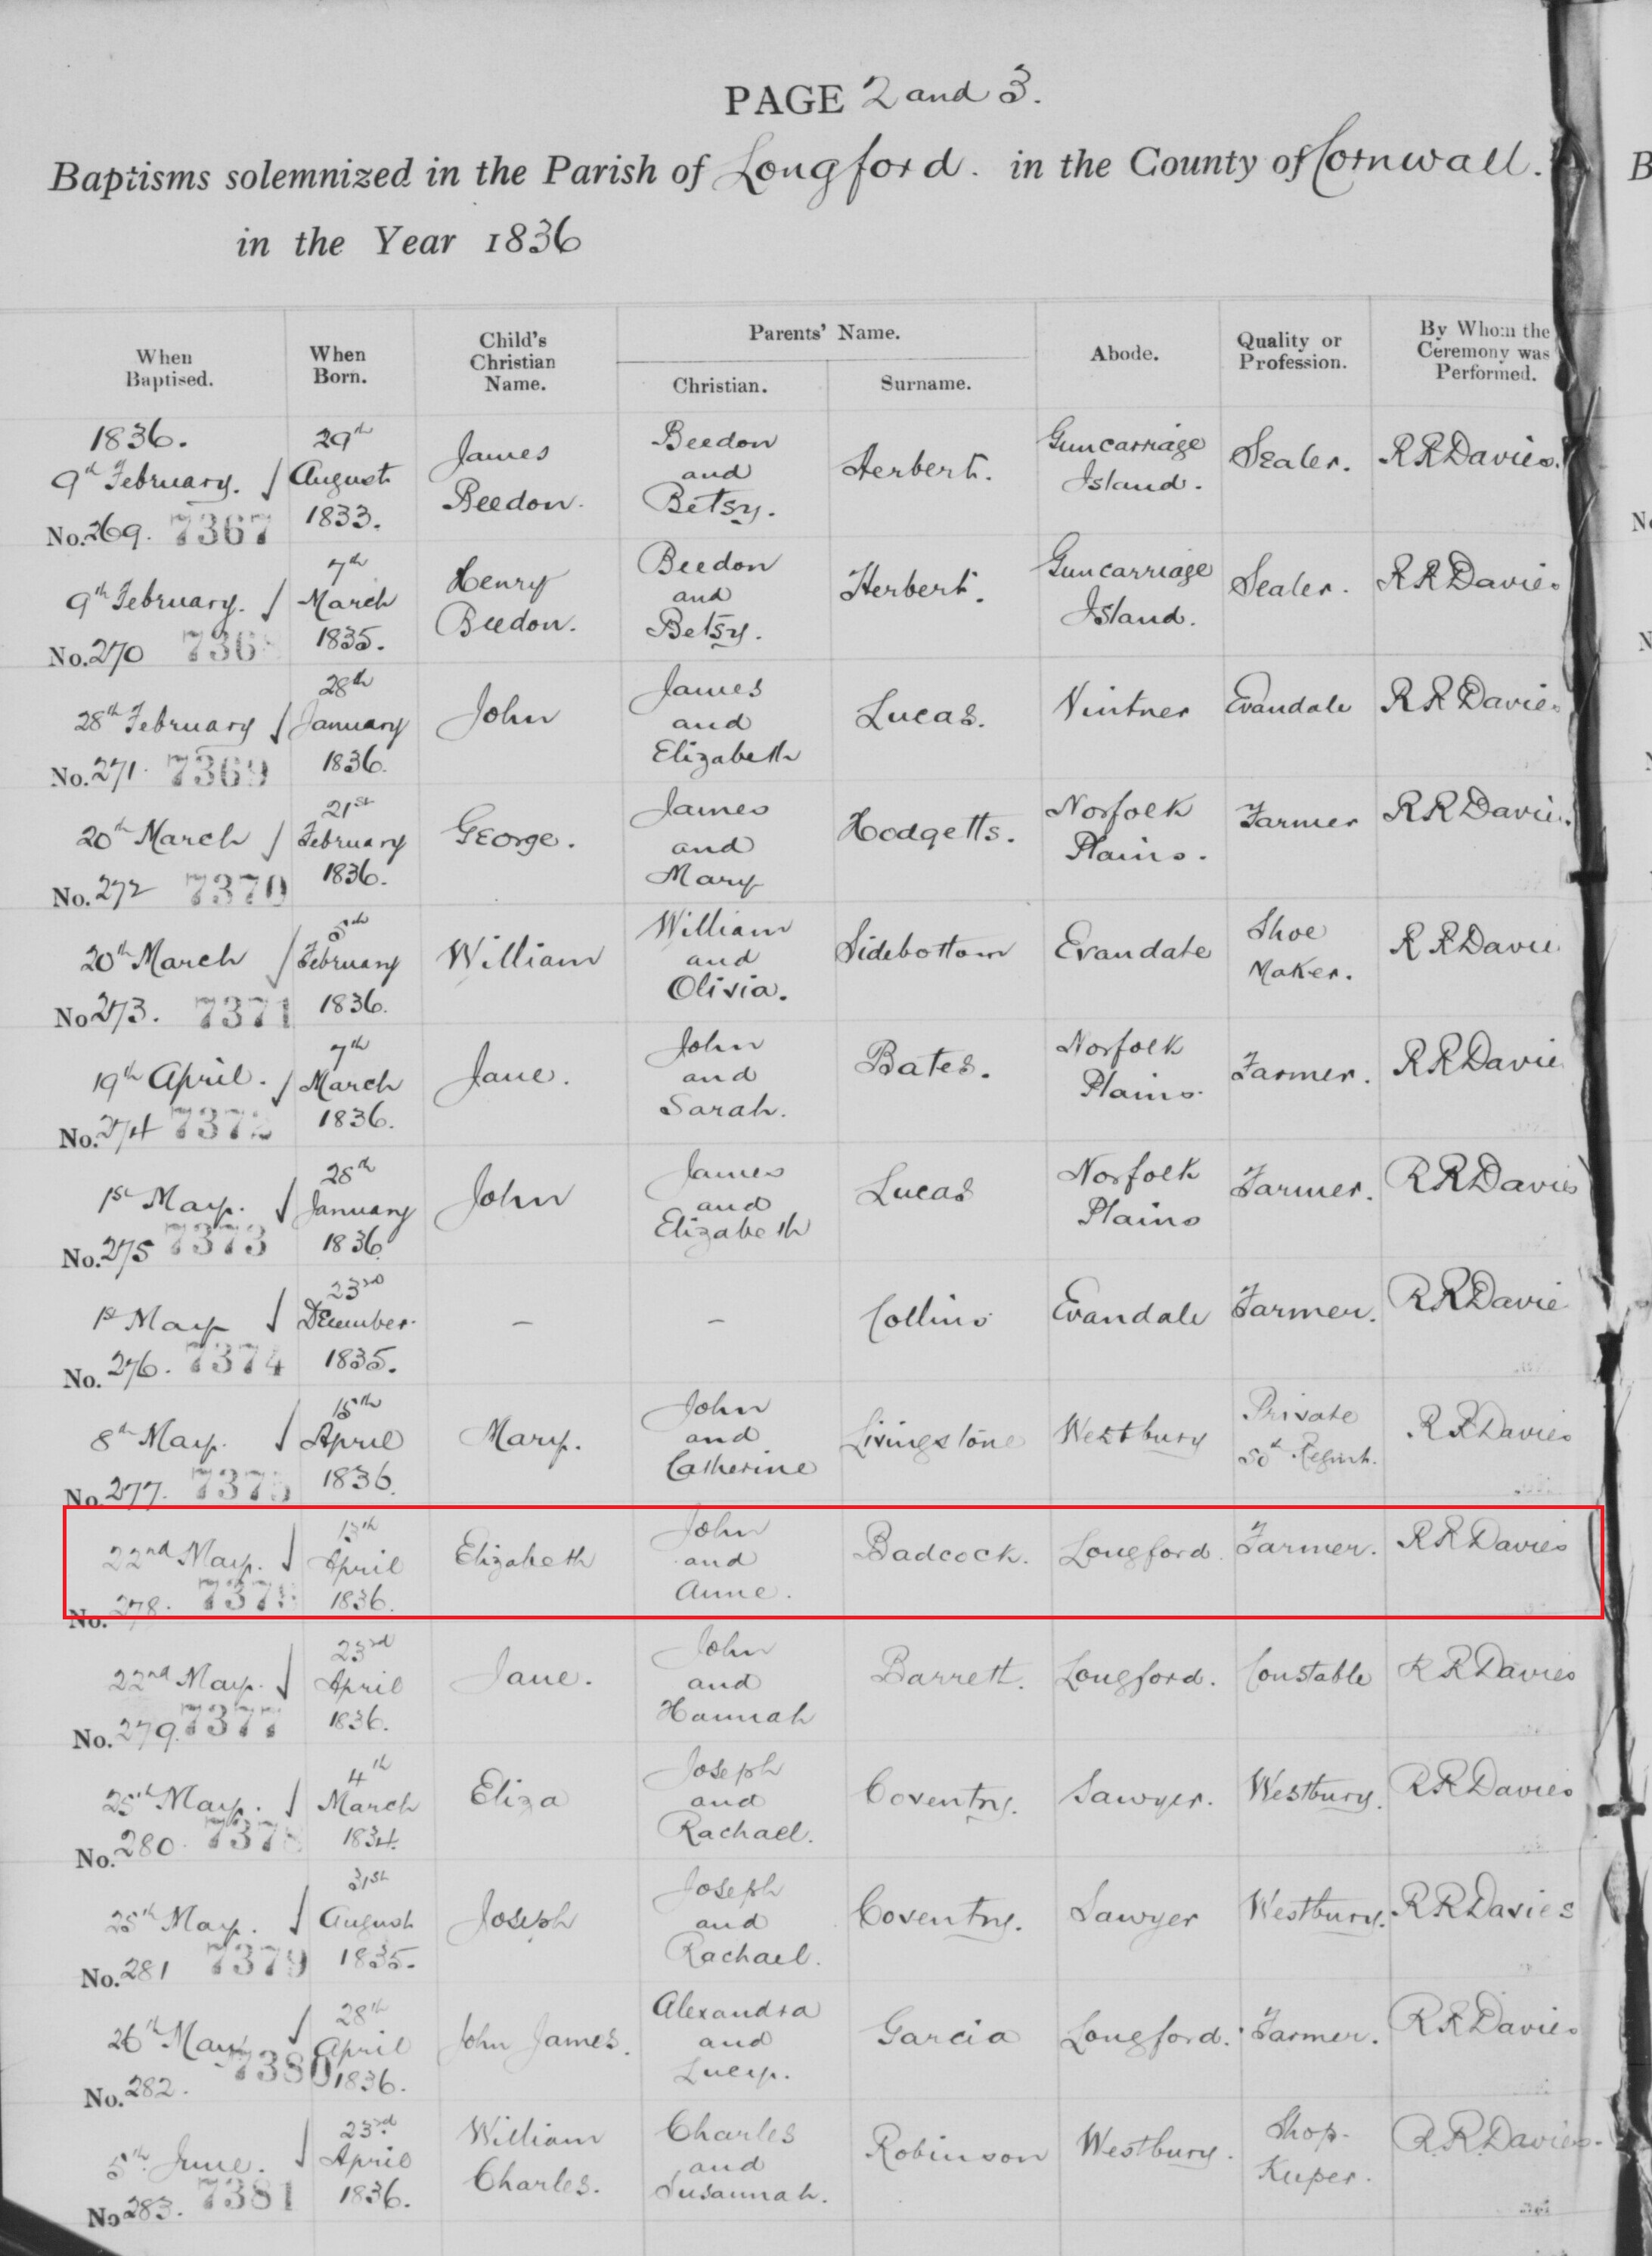 PAGE 2 and 3.
Baptisms solemnized in the Parish of Longford. in the County of Cornwall.
in the Year 1836
When Baptised. When Born. Child's Christian Name. Parents' Name. Christian. Surname. Abode. Quality or Profession. By Whom the Ceremony was Performed.
1836. 9th February. No. 269. 7367 29th August 1833. James Beedon. Beedon and Betsy. Herbert. Guncarriage Island. Sealer. R R Davies.
9th February. No. 270 736 7th March 1835. Henry Beedon. Beedon and Betsy. Herbert. Guncarriage Island. Sealer. R R Davies
28th February No. 271. 7369 28th January 1836. John James and Elizabeth Lucas. Vintner Evandale R R Davies
20th March No. 272 7370 21st February 1836. George. James and Mary Hodgetts. Norfolk Plains. Farmer R R Davies.
20th March No 273. 7371 February 1836. William William and Olivia. Sidebottom Evandale Shoe Maker. R R Davie
19th April. No. 274 7372 7th March 1836. Jane. John and Sarah. Bates. Norfolk Plains. Farmer. R R Davie
1st May. No. 275 7373 28th January 1836 John James and Elizabeth Lucas Norfolk Plains Farmer. R R Davies
1st May No. 276. 7374 23rd December. 1835. – – Collins Evandale Farmer. R R Davie
8th May. No. 277. 7375 15th April 1836. Mary. John and Catherine Livingstone Westbury Private 50th Regmt. R R Davies
22nd May. No. 278. 737 13th April 1836. Elizabeth John and Anne. Badcock. Longford. Farmer. R R Davies
22nd May. No. 279. 7377 23rd April 1836. Jane. John and Hannah Barrett. Longford. Constable R R Davies
25th May. No. 280. 7378 4th March 1834. Eliza Joseph and Rachael. Coventry. Sawyer. Westbury. R R Davies
25th May. No. 281 7379 31st August 1835. Joseph Joseph and Rachael. Coventry. Sawyer Westbury. R R Davies
26th May No. 282. 7380 28th April 1836. John James. Alexandra and Lucy. Garcia Longford. Farmer. R R Davies
5th June. No 283. 7381 23rd April 1836. William Charles. Charles and Susannah. Robinson Westbury. Shop-Keeper. R. R. Davies.
B